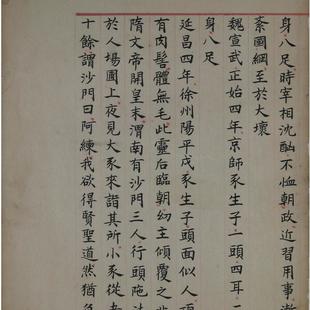 身八足時宰相沈酗不恤朝政近習用事漸
紊國綱至於大壞
魏宣武正始四年京師豕生子一頭四耳二
身八足
延昌四年徐州陽平戍豕生子頭面似人頂
有肉髻體無毛此靈后臨朝幼主傾覆之
隋文帝開皇末渭南有沙門三人行頭陁法
於人場圃上夜見大豕來詣其所小豕從者
十餘謂沙門曰阿練我欲得賢聖道然猶負